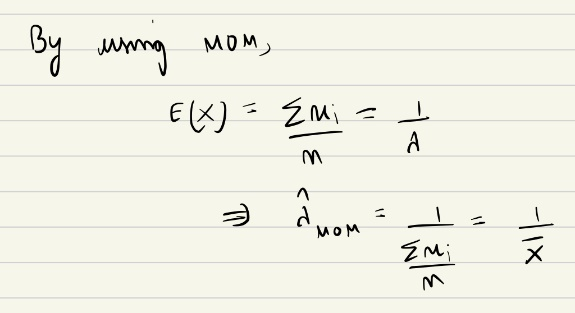 By using MOM,
E(X) = Σxi/n = 1/λ
⇒ λ̂MOM = 1/(Σxi/n) = 1/X̄